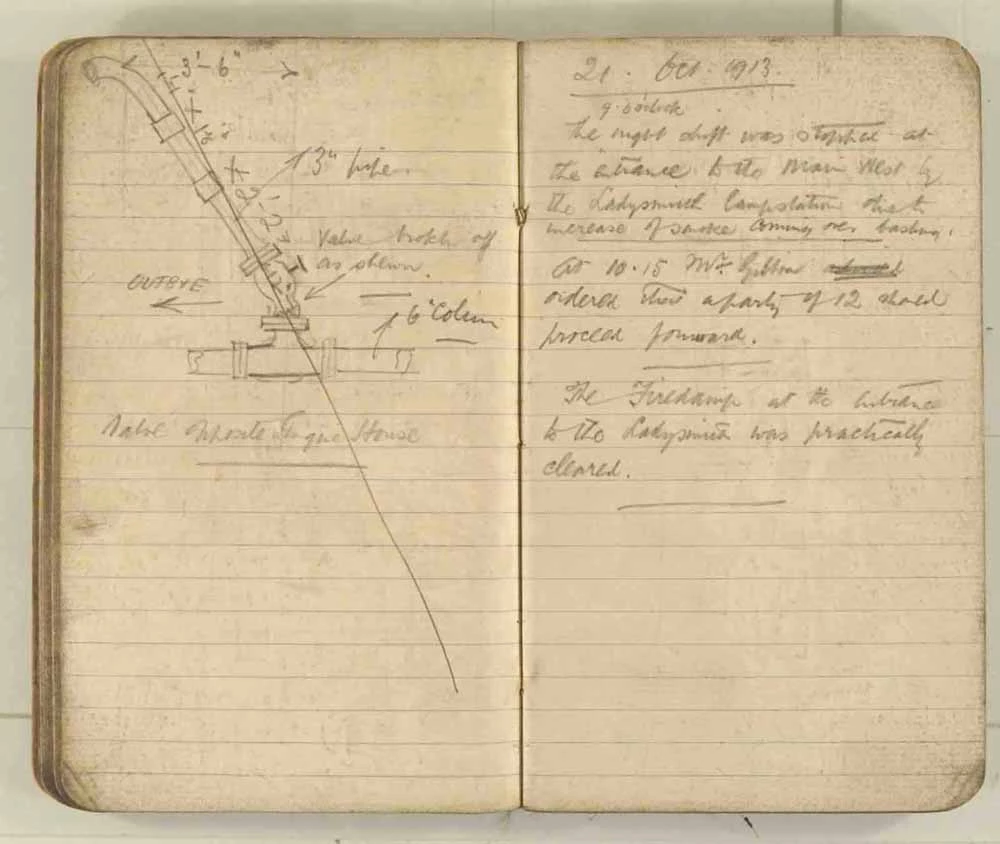 3'-6"
3" pipe.
Valve broken off
as shewn.
OUTBYE
6" Column
Valve opposite Engine House
21. Oct. 1913.
9 o'clock
The night shift was stopped at
the entrance to the Main West by
the Ladysmith Lampstation due to
increase of smoke coming over bashing.
At 10.15 Mr. Gibbins
ordered that a party of 12 should
proceed forward.
The Firedamp at the entrance
to the Ladysmith was practically
cleared.